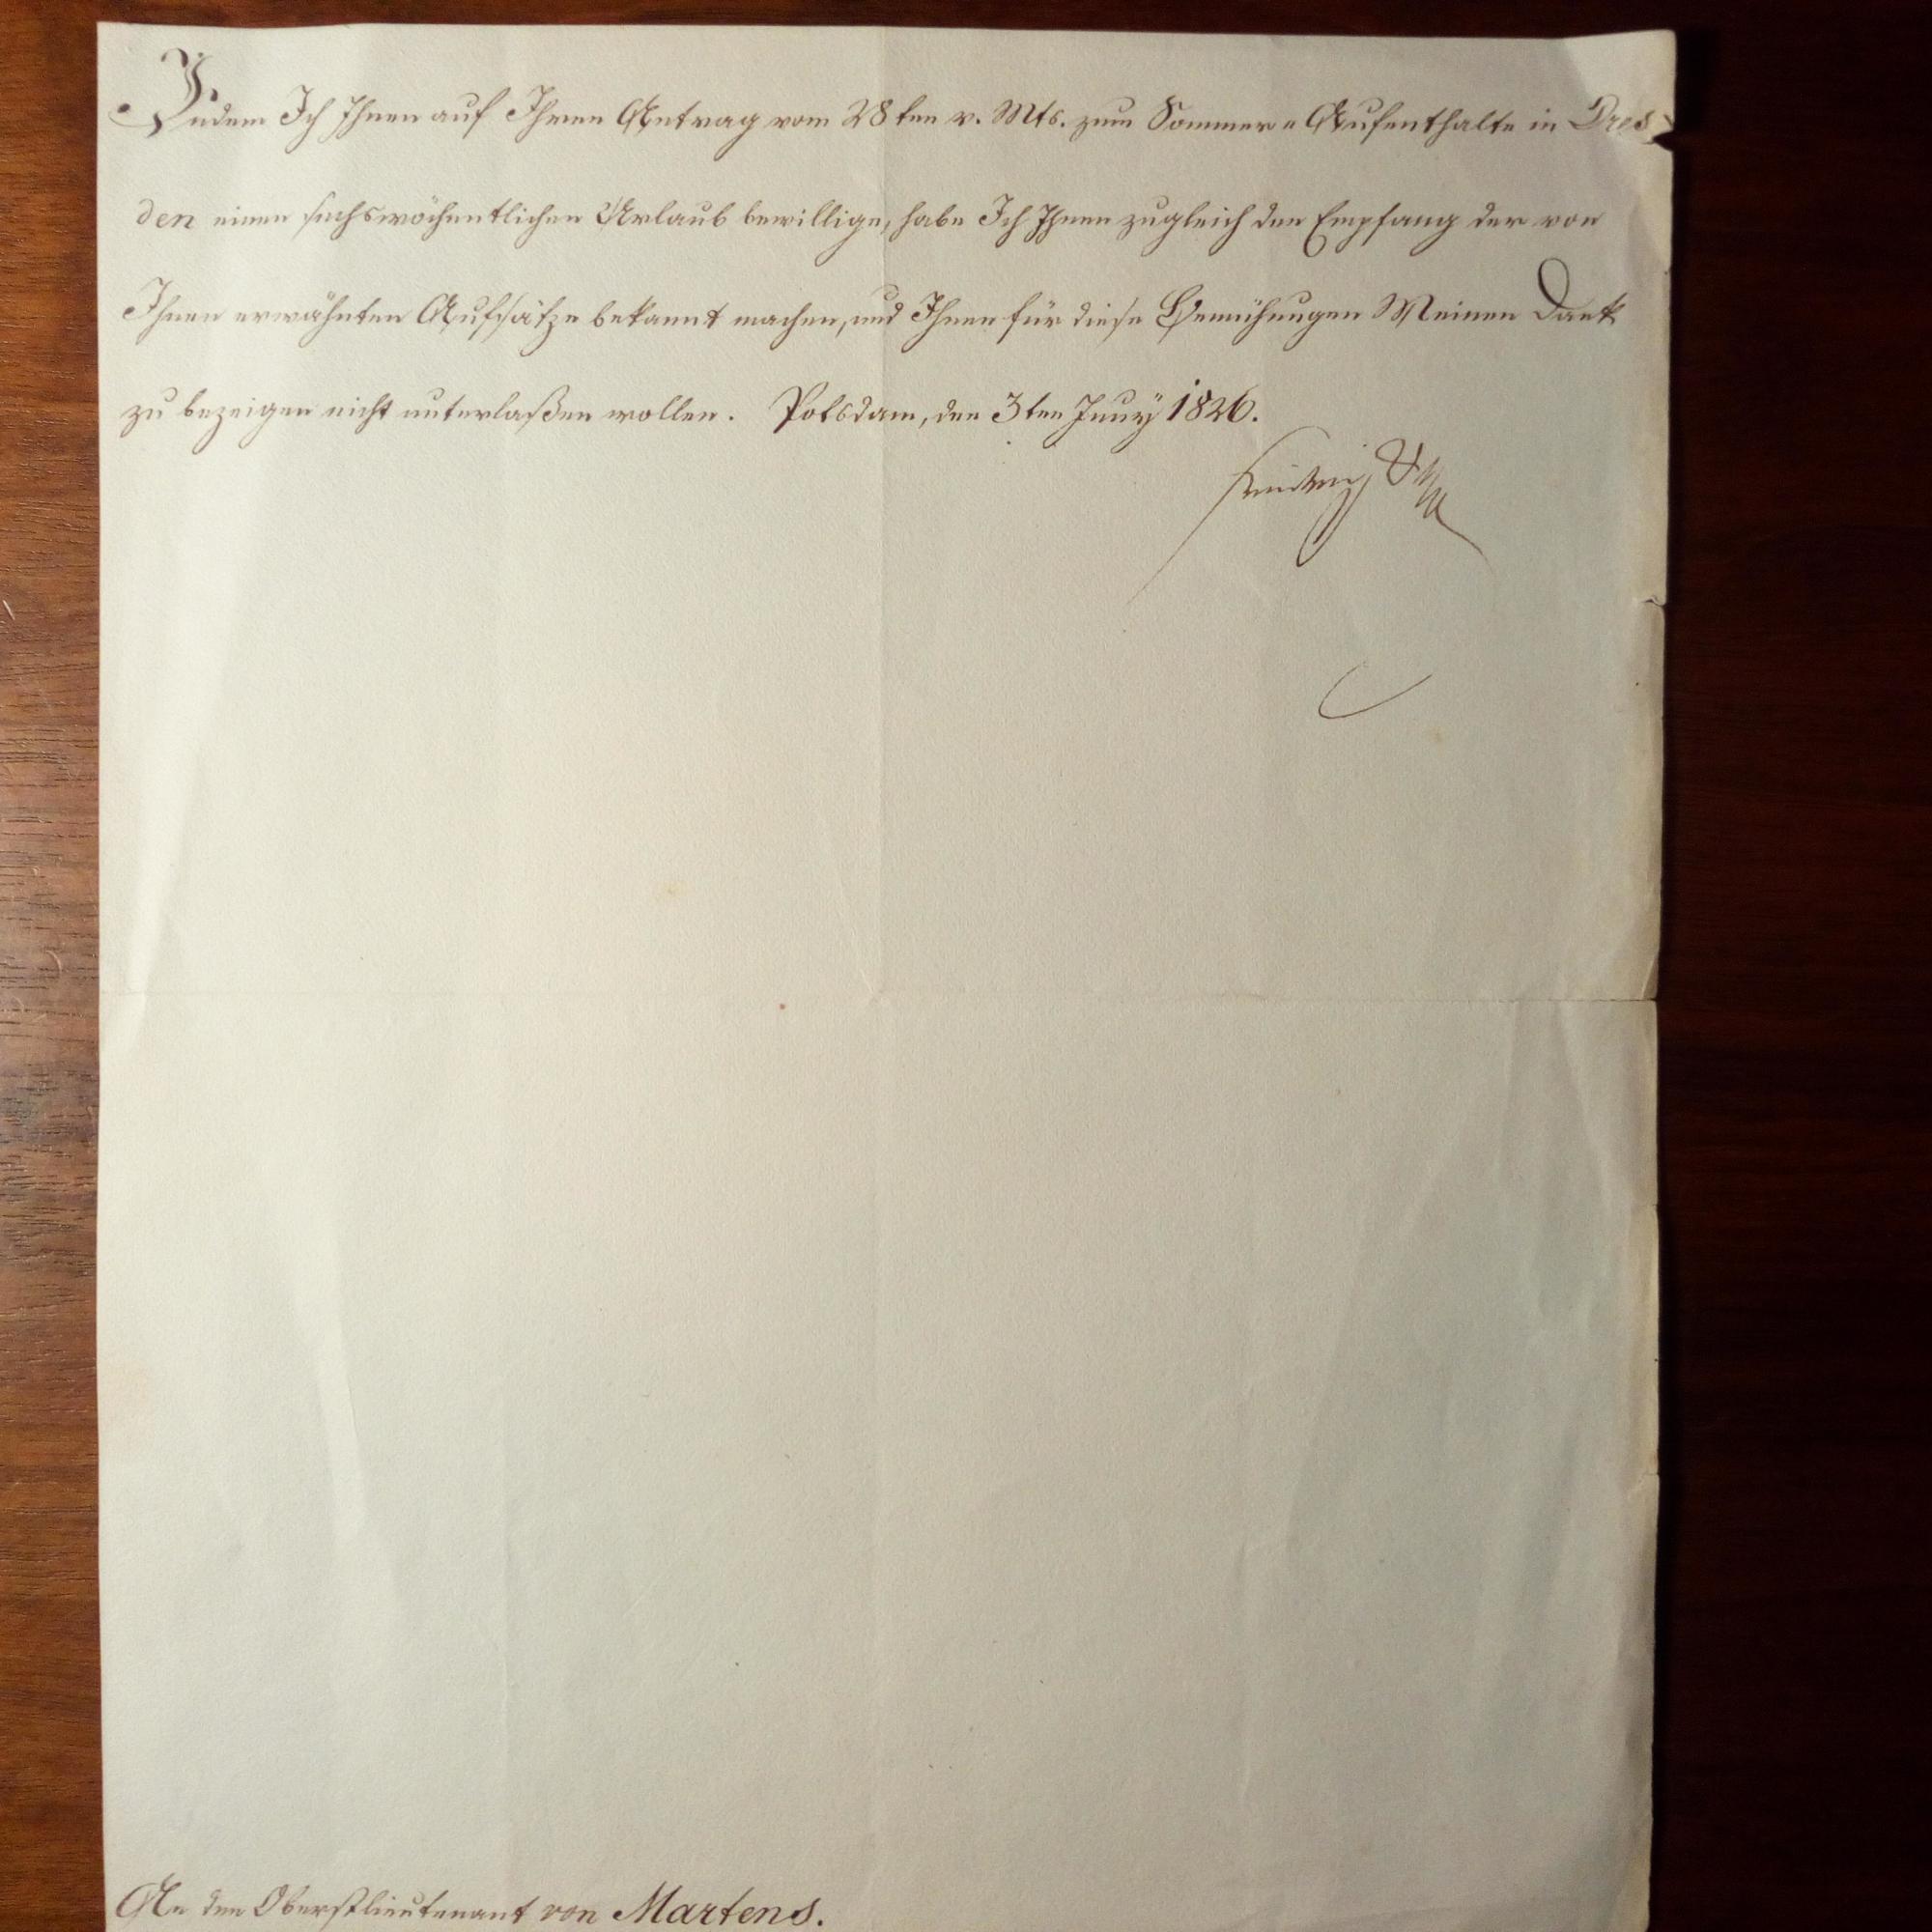 Indem Ich Ihnen auf Ihren Antrag vom 28ten v. Mts. zum Sommer-Aufenthalte in Dres-
den einen sechswöchentlichen Urlaub bewillige, habe Ich Ihnen zugleich den Empfang der von
Ihnen erwähnten Aufsätze bekannt machen, und Ihnen für diese Bemühungen Meinen Dank
zu bezeigen nicht unterlaßen wollen. Potsdam, den 3ten Juny 1826.
Friedrich Wilhelm
An den Oberstlieutenant von Martens.